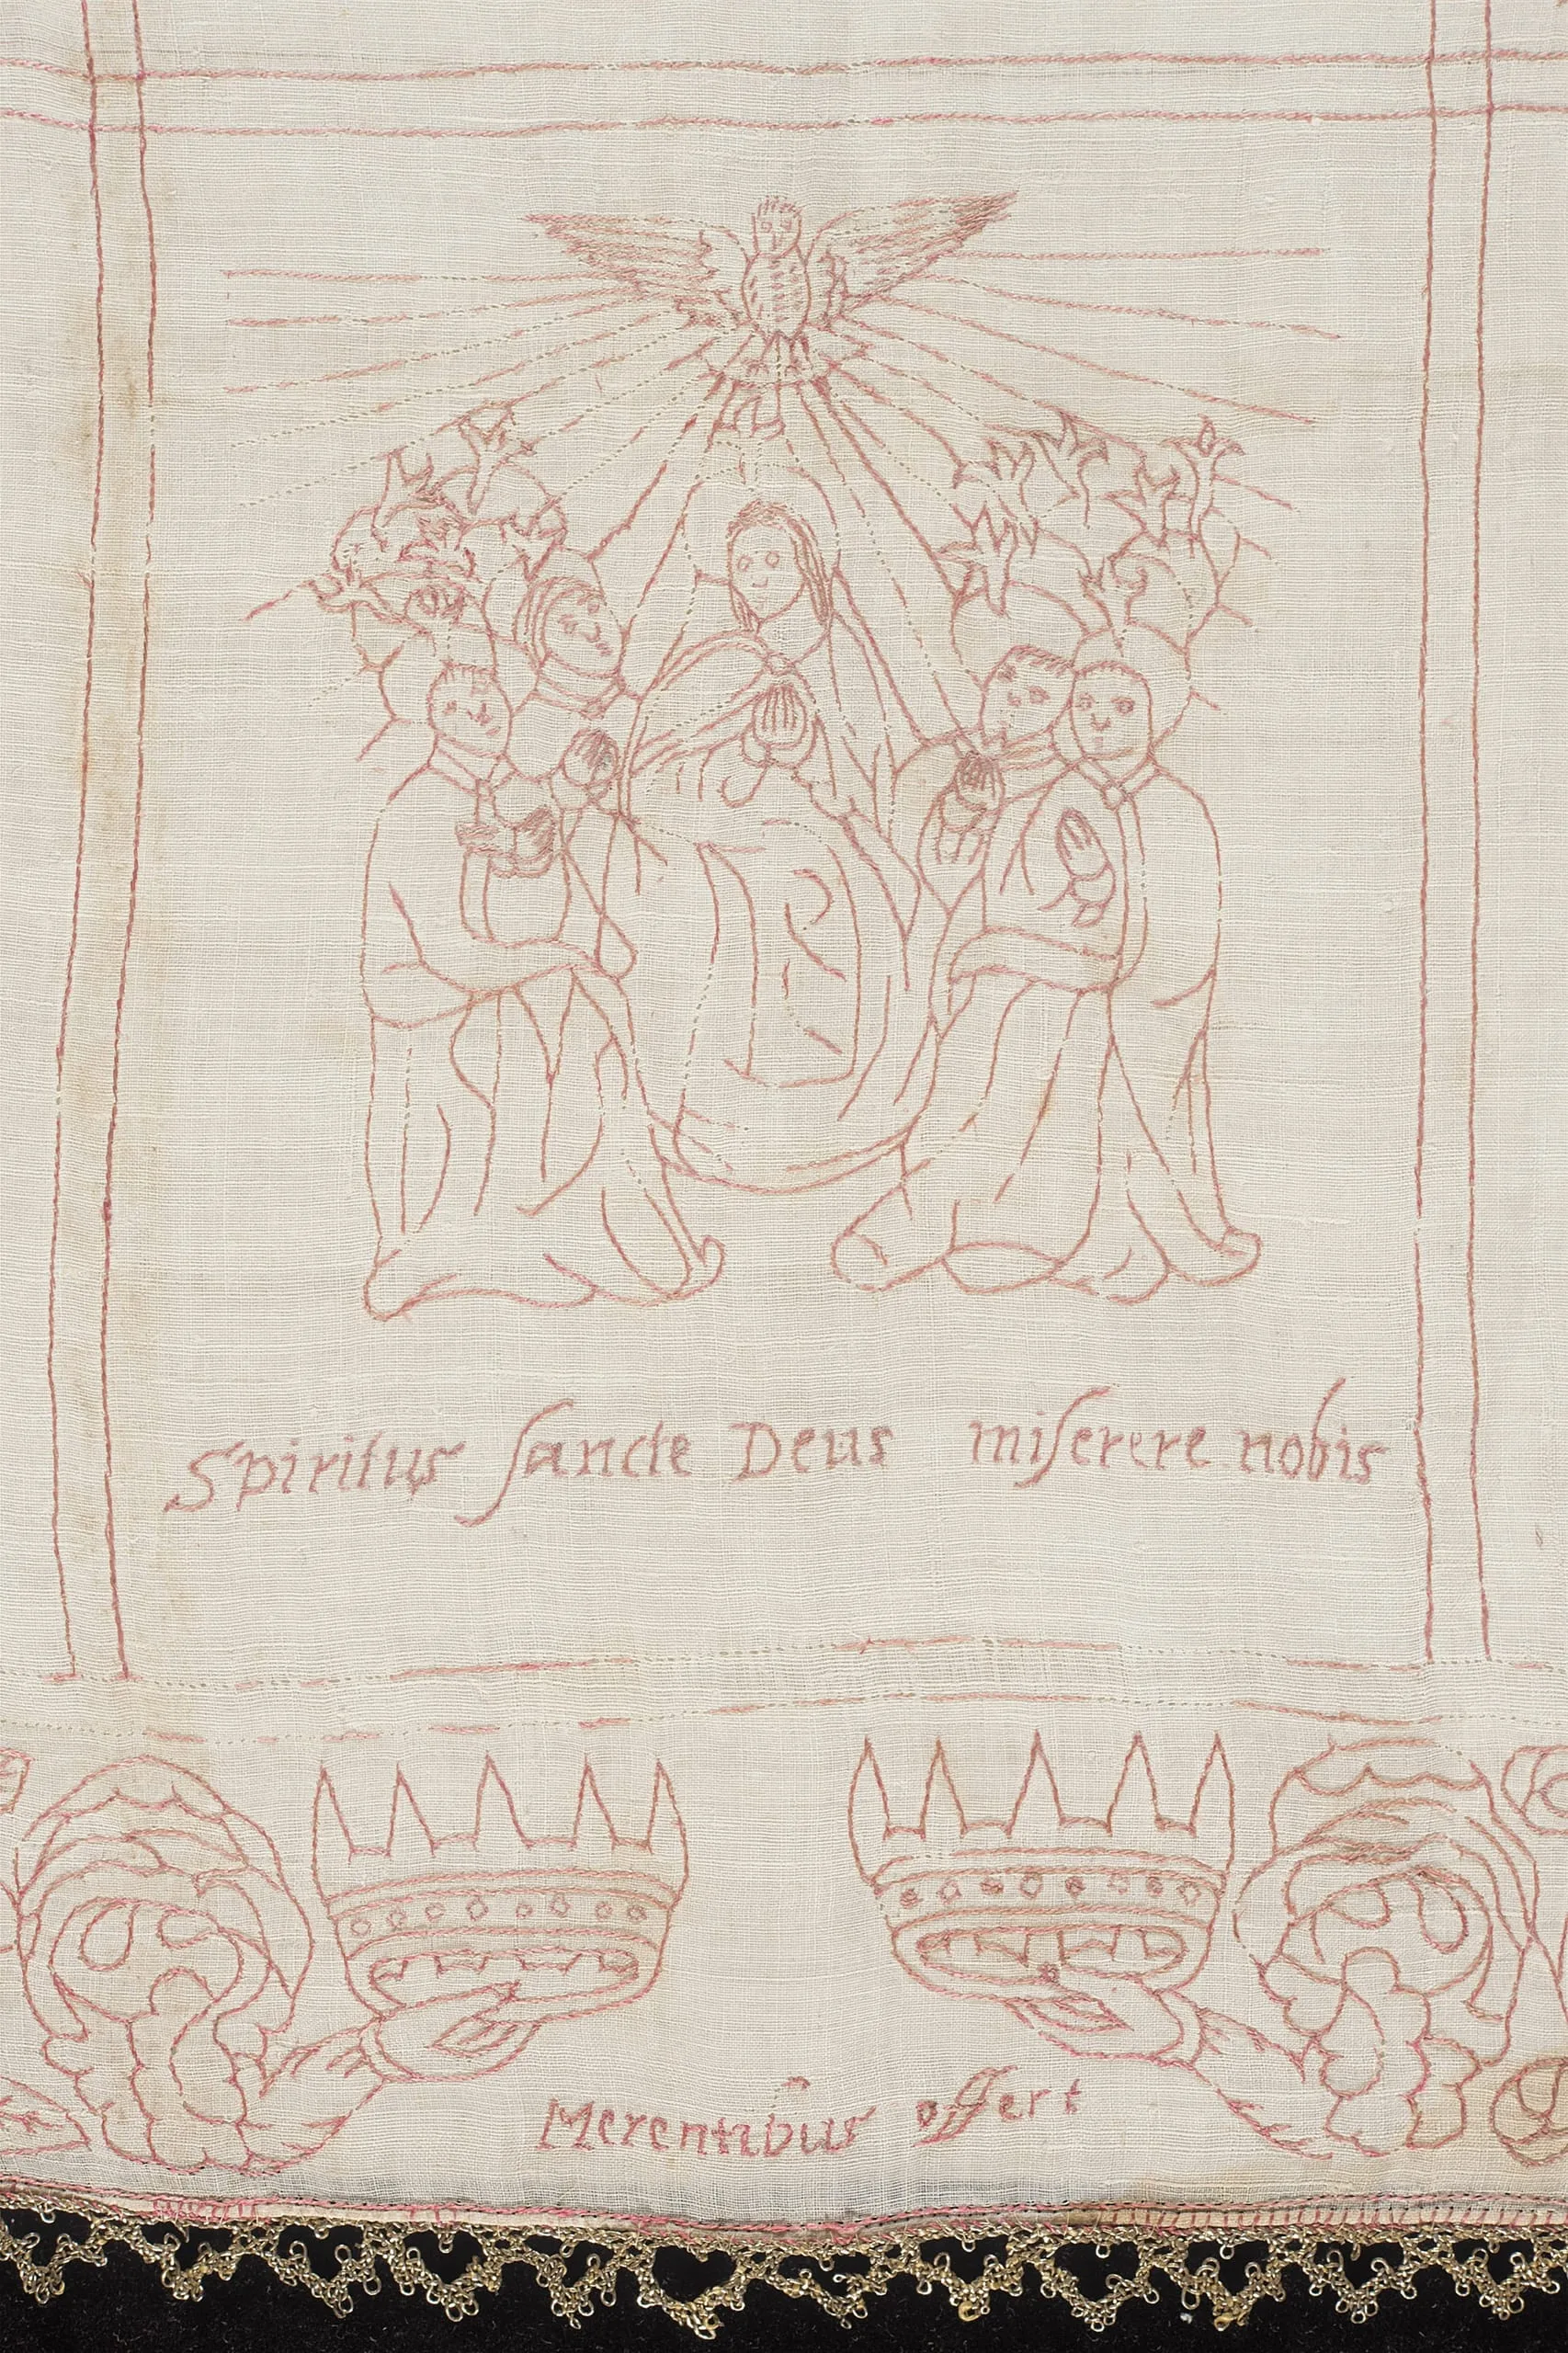 Spiritus ſancte Deus miſerere nobis
Merentibus offert